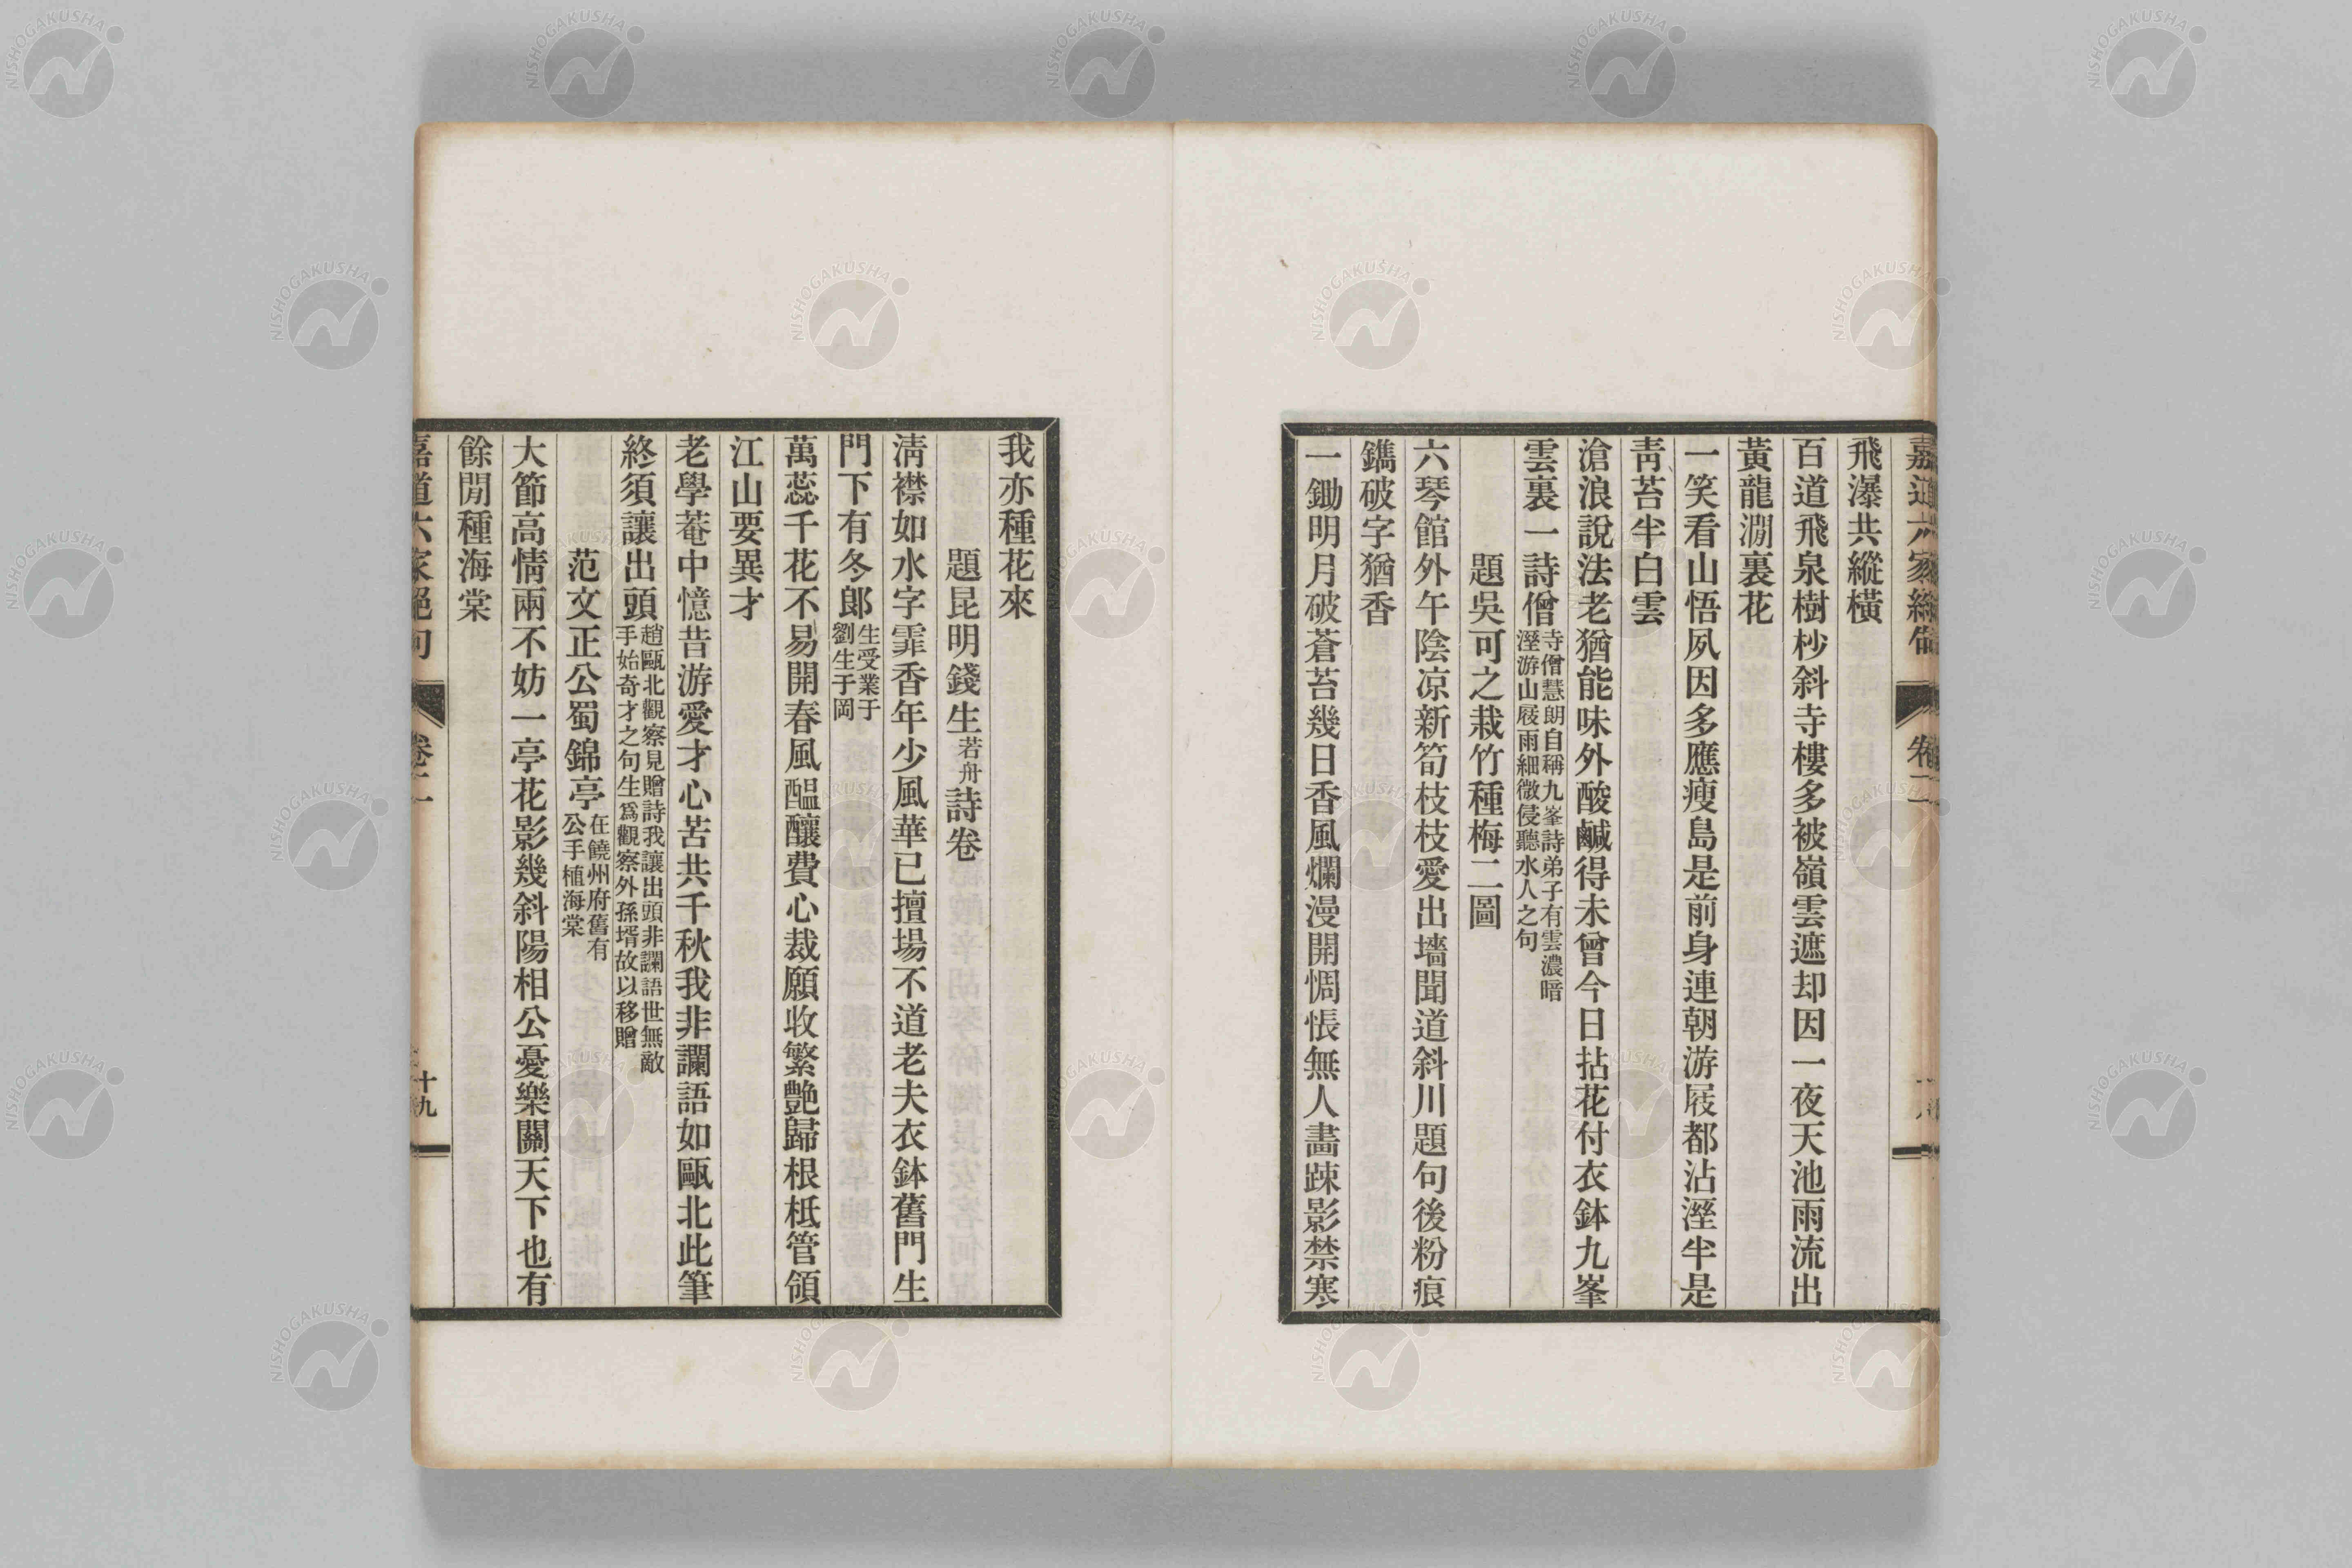 嘉道六家絕句
卷二
飛瀑共縱橫
百道飛泉樹杪斜寺樓多被嶺雲遮却因一夜天池雨流出
黃龍澗裏花
一笑看山悟夙因多應瘦島是前身連朝游屐都沾溼半是
靑苔半白雲
滄浪說法老猶能味外酸鹹得未曾今日拈花付衣鉢九峯
雲裏一詩僧寺僧慧朗自稱九峯詩弟子有雲濃暗
溼游山屐雨細微侵聽水人之句
題吳可之栽竹種梅二圖
六琴館外午陰凉新筍枝枝愛出墻聞道斜川題句後粉痕
鐫破字猶香
一鋤明月破蒼苔幾日香風爛漫開惆悵無人畵疎影禁寒
我亦種花來
題昆明錢生若舟詩卷
淸襟如水字霏香年少風華已擅場不道老夫衣鉢舊門生
門下有冬郞生受業于
劉生子岡
萬蕊千花不易開春風醖釀費心裁願收繁艷歸根柢管領
江山要異才
老學菴中憶昔游愛才心苦共千秋我非讕語如甌北此筆
終須讓出頭趙甌北觀察見贈詩我讓出頭非讕語世無敵
手始奇才之句生爲觀察外孫壻故以移贈
范文正公蜀錦亭在饒州府舊有
公手植海棠
大節高情兩不妨一亭花影幾斜陽相公憂樂關天下也有
餘閒種海棠
嘉道六家絕句
卷二
十九
NISHOGAKUSHA